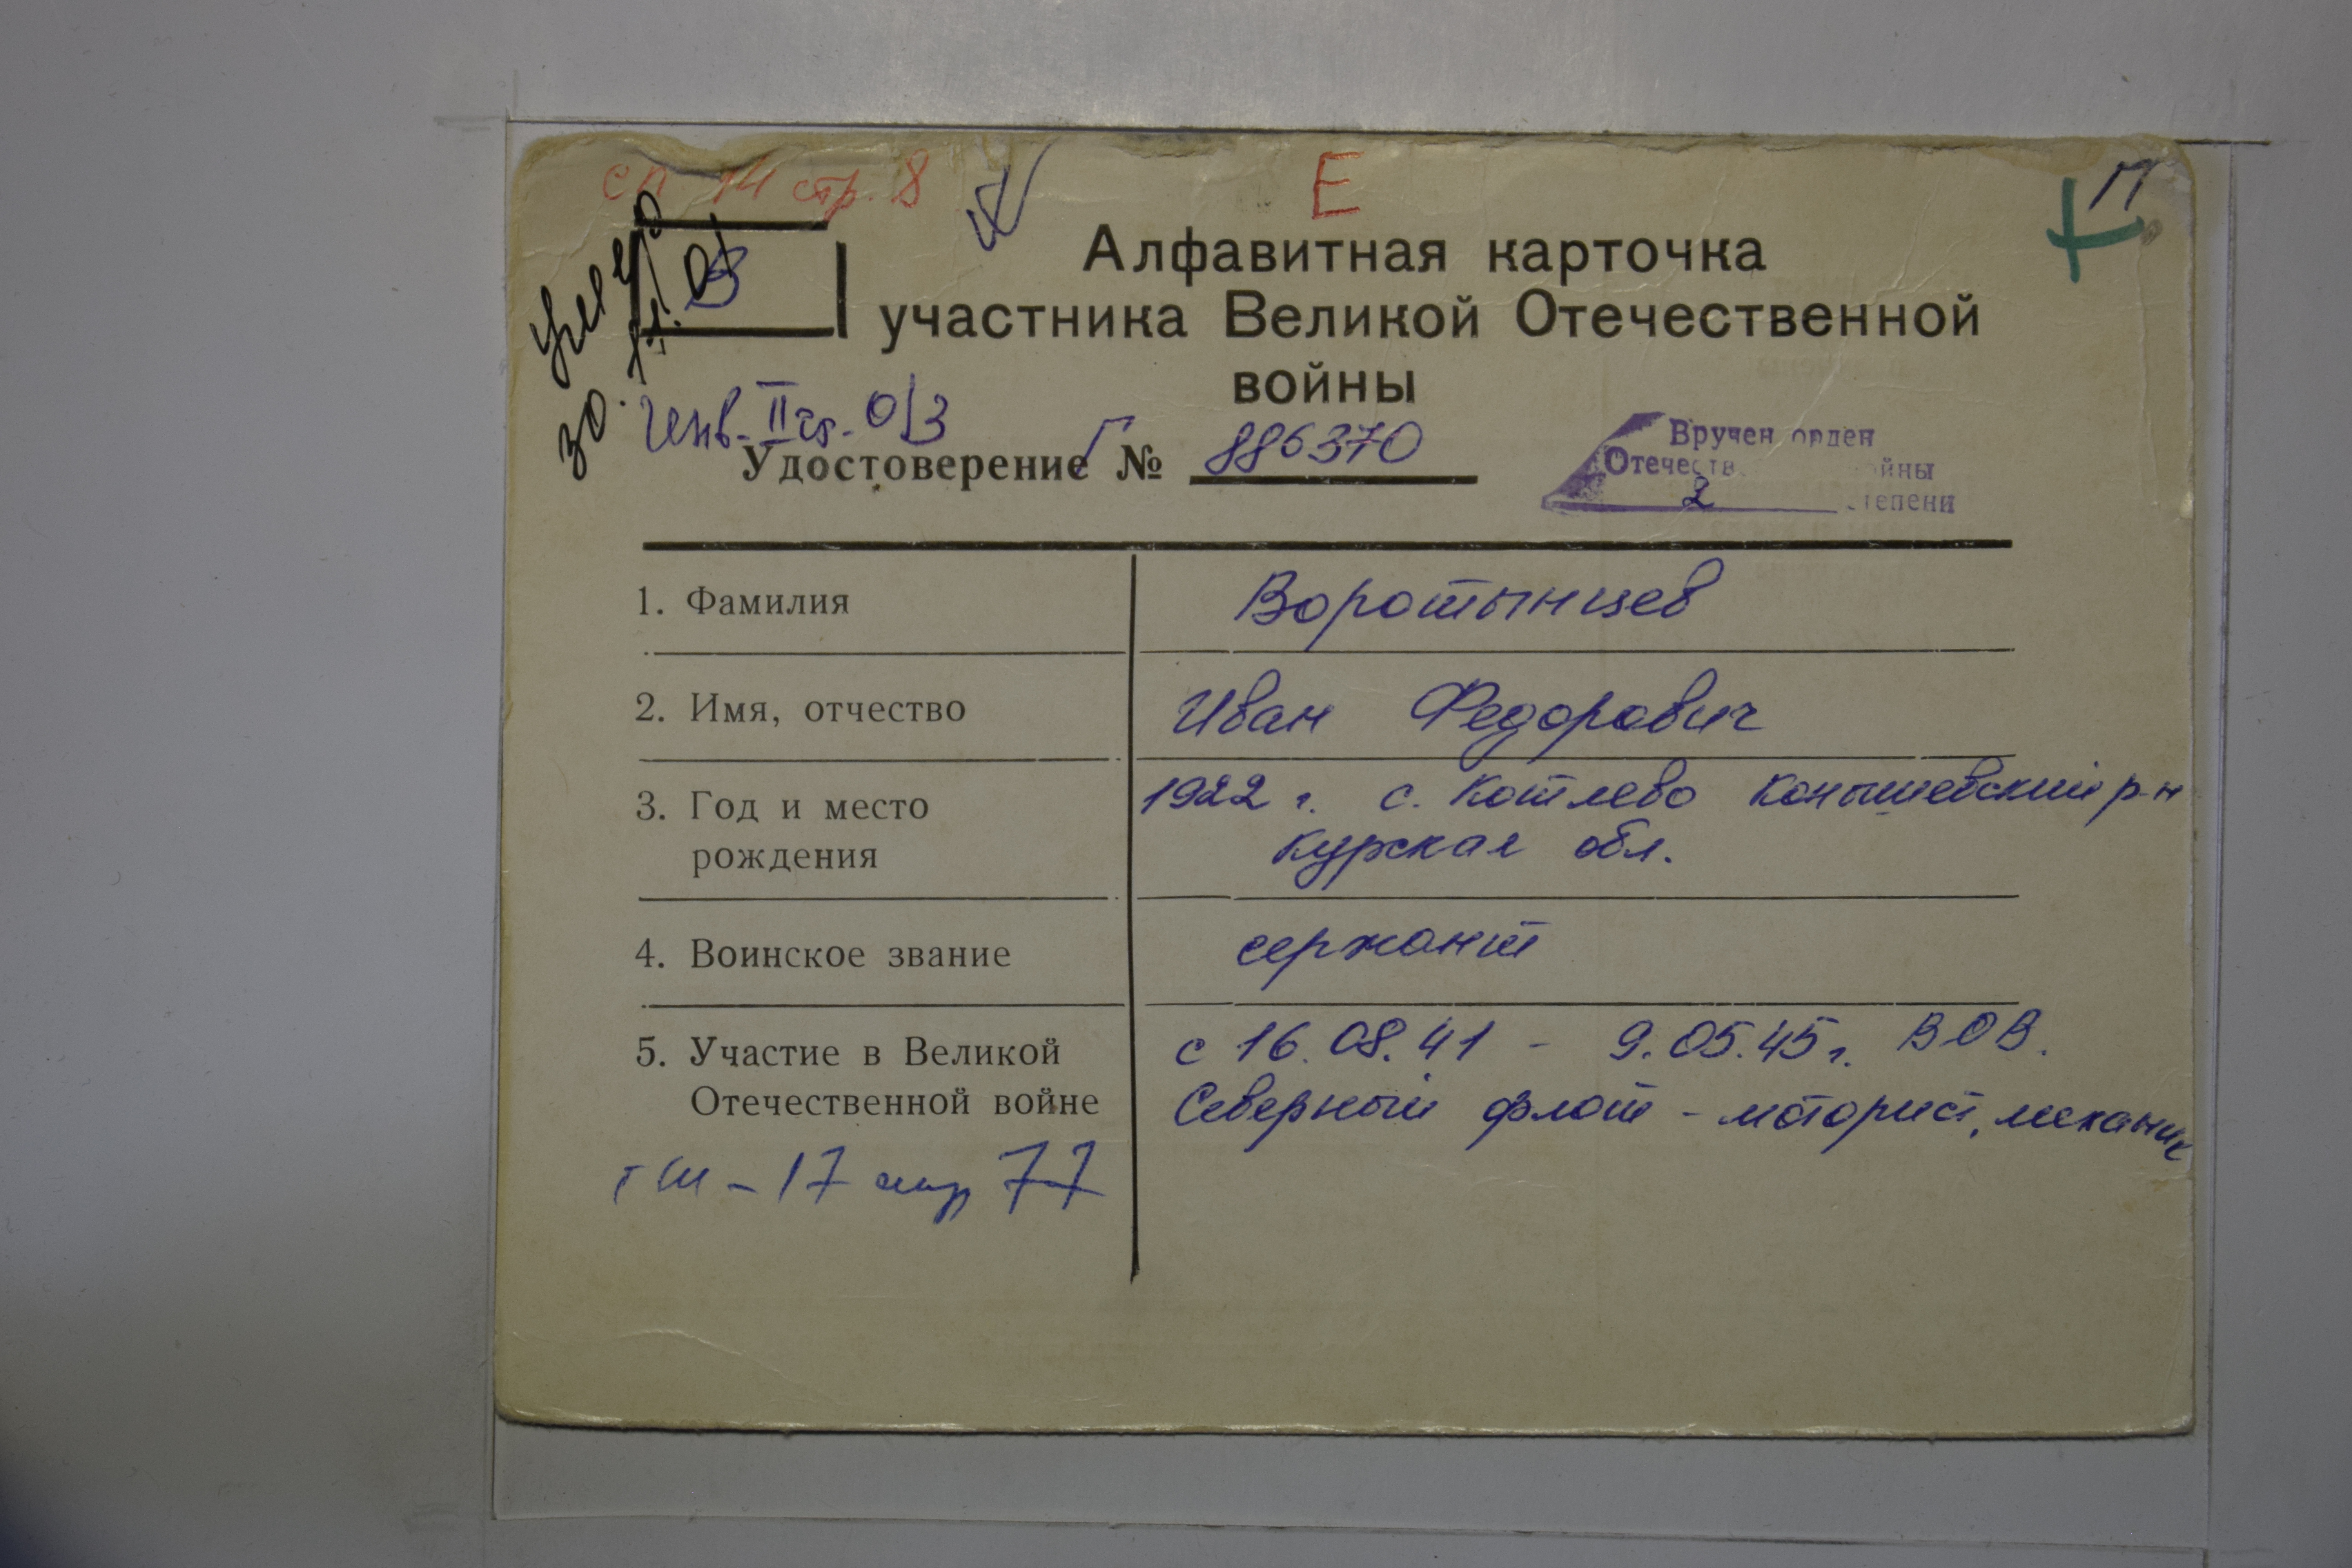 сп 14 стр. 8
Е
П
В
умер
30. 11. 01
Алфавитная карточка
участника Великой Отечественной
войны
Инв. II гр. О/З
Удостоверение Г № 886370
Вручен орден
Отечеств йны
2 степени
1. Фамилия Воротынцев
2. Имя, отчество Иван Федорович
3. Год и место 1922 г. с. Котлево Конышевский р-н
рождения Курская обл.
4. Воинское звание сержант
5. Участие в Великой с 16.08.41 - 9.05.45 г. ВОВ.
Отечественной войне Северный флот - моторист, механик
- 17 77